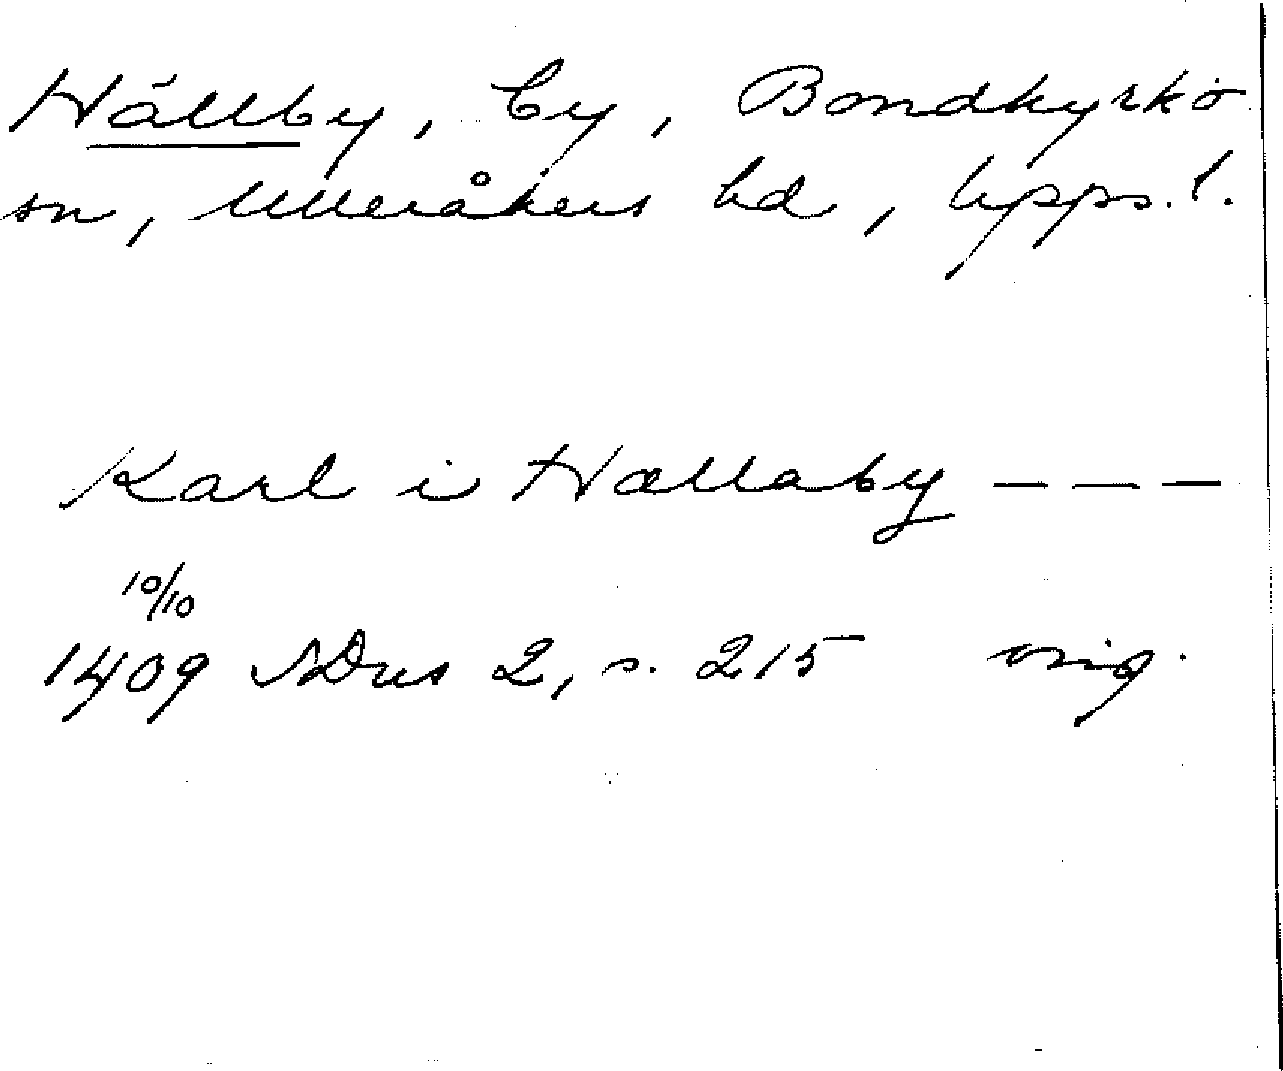 Hällby, by, Bondkyrko
sn, Ulleråkers hd, Upps. l.
Karl i Hællaby – – –
10/10
1409 SDns 2, s. 215 orig.